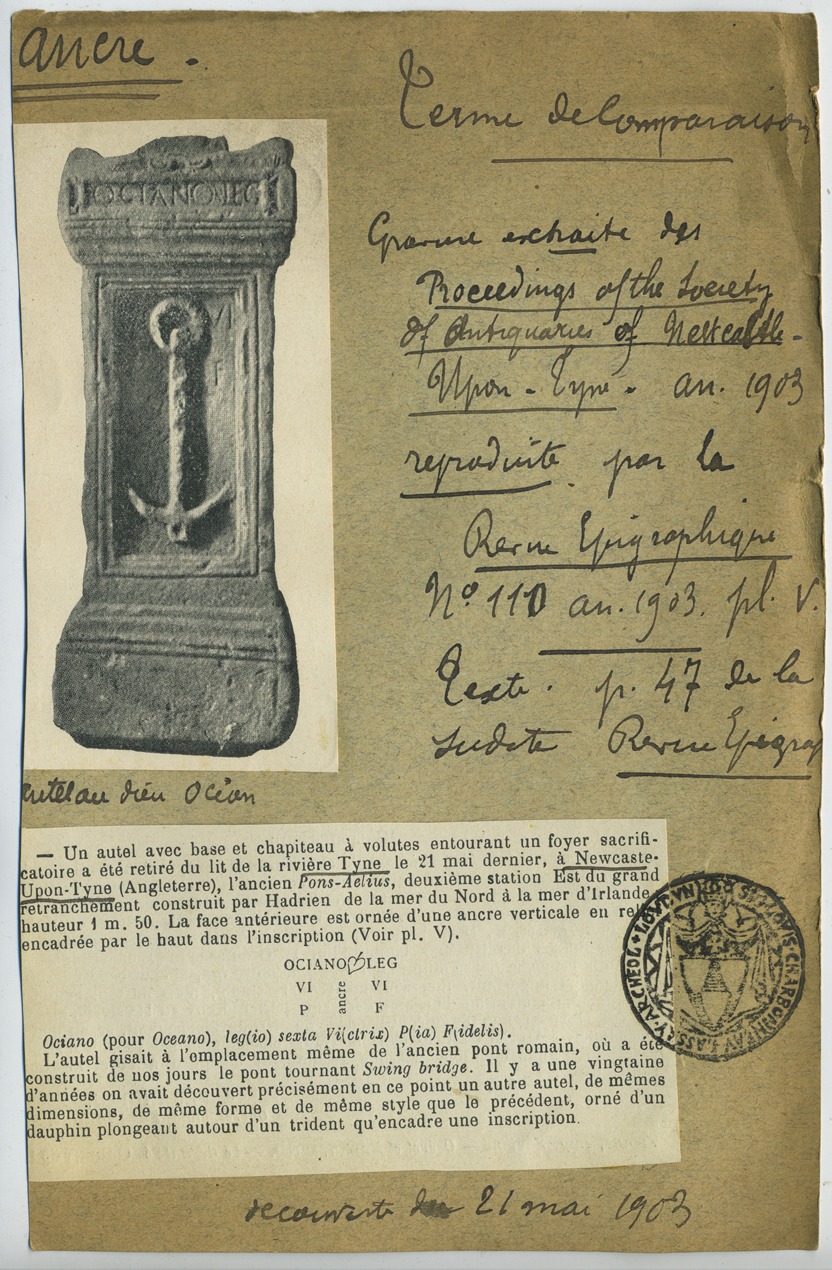 ancre.
Terme de Comparaison
Gravure extraite des
Proceedings of the Society
of Antiquaries of Newcastle-
Upon-Tyne. an. 1903
reproduite par la
Revue Epigraphique
N° 110 an. 1903. pl. V.
Texte. p. 47 de la
sudite Revue Epigrap
OCIANO LEG
VI
F
autel au dieu Océan
— Un autel avec base et chapiteau à volutes entourant un foyer sacrifi-
catoire a été retiré du lit de la rivière Tyne le 21 mai dernier, à Newcaste-
Upon-Tyne (Angleterre), l'ancien Pons-Aelius, deuxième station Est du grand
retranchement construit par Hadrien de la mer du Nord à la mer d'Irlande,
hauteur 1 m. 50. La face antérieure est ornée d'une ancre verticale en relie
encadrée par le haut dans l'inscription (Voir pl. V).
OCIANO LEG
VI ancre VI
P F
Ociano (pour Oceano), leg(io) sexta Vi(ctrix) P(ia) F(idelis).
L'autel gisait à l'emplacement même de l'ancien pont romain, où a été
construit de nos jours le pont tournant Swing bridge. Il y a une vingtaine
d'années on avait découvert précisément en ce point un autre autel, de mêmes
dimensions, de même forme et de même style que le précédent, orné d'un
dauphin plongeant autour d'un trident qu'encadre une inscription.
decouverte du 21 mai 1903